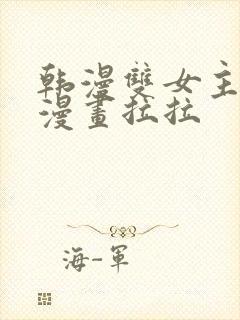 韩漫雙女主
漫畫拉拉
海-軍